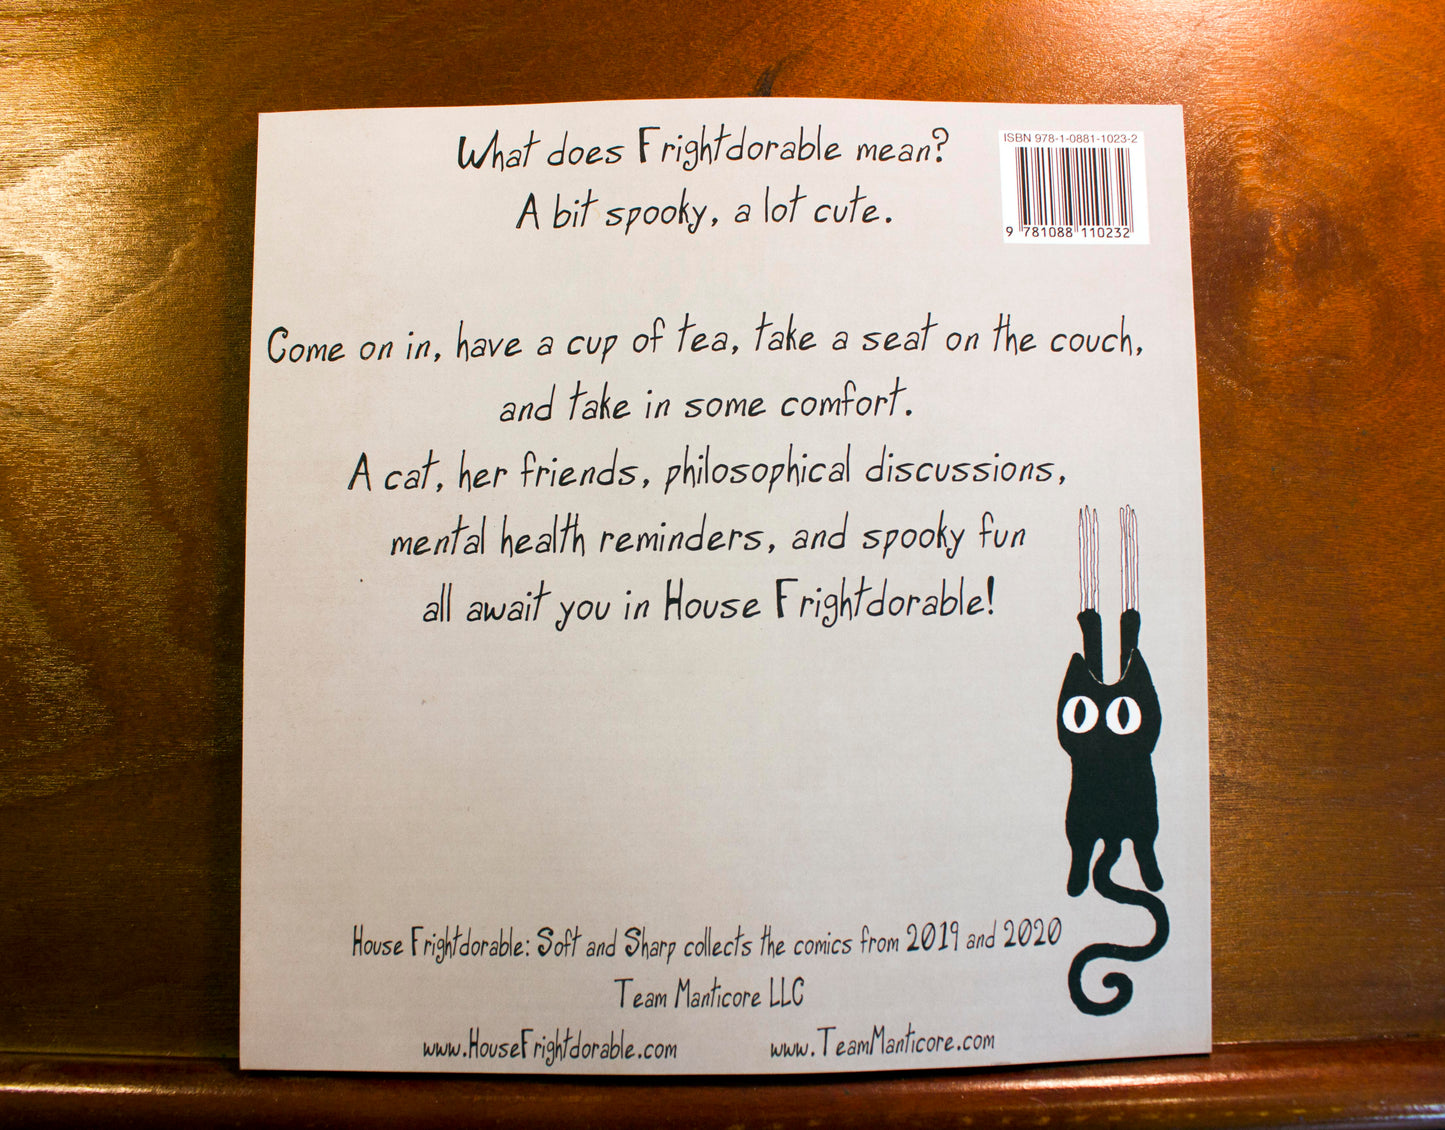 What does Frightdorable mean?
A bit spooky, a lot cute.
ISBN 978-1-0881-1023-2
9 781088 110232
Come on in, have a cup of tea, take a seat on the couch,
and take in some comfort.
A cat, her friends, philosophical discussions,
mental health reminders, and spooky fun
all await you in House Frightdorable!
House Frightdorable: Soft and Sharp collects the comics from 2019 and 2020
Team Manticore LLC
www.HouseFrightdorable.com
www.TeamManticore.com